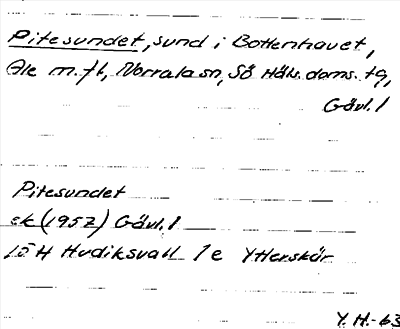 Pitesundet, sund i Bottenhavet,
Ale m.fl., Norrala sn, Sö Häls. doms. tg,
Gävl. l
Pitesundet
ek (1957) Gävl. l
15H Hudiksvall 1e Ytterskär
Y.H.-63